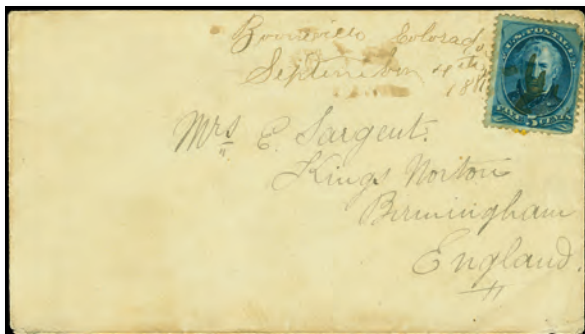 Booneville Colorado
September 4th
Mrs E. Sargent.
Kings Norton
Birmingham
England.
U.S. POSTAGE
FIVE 5 CENTS